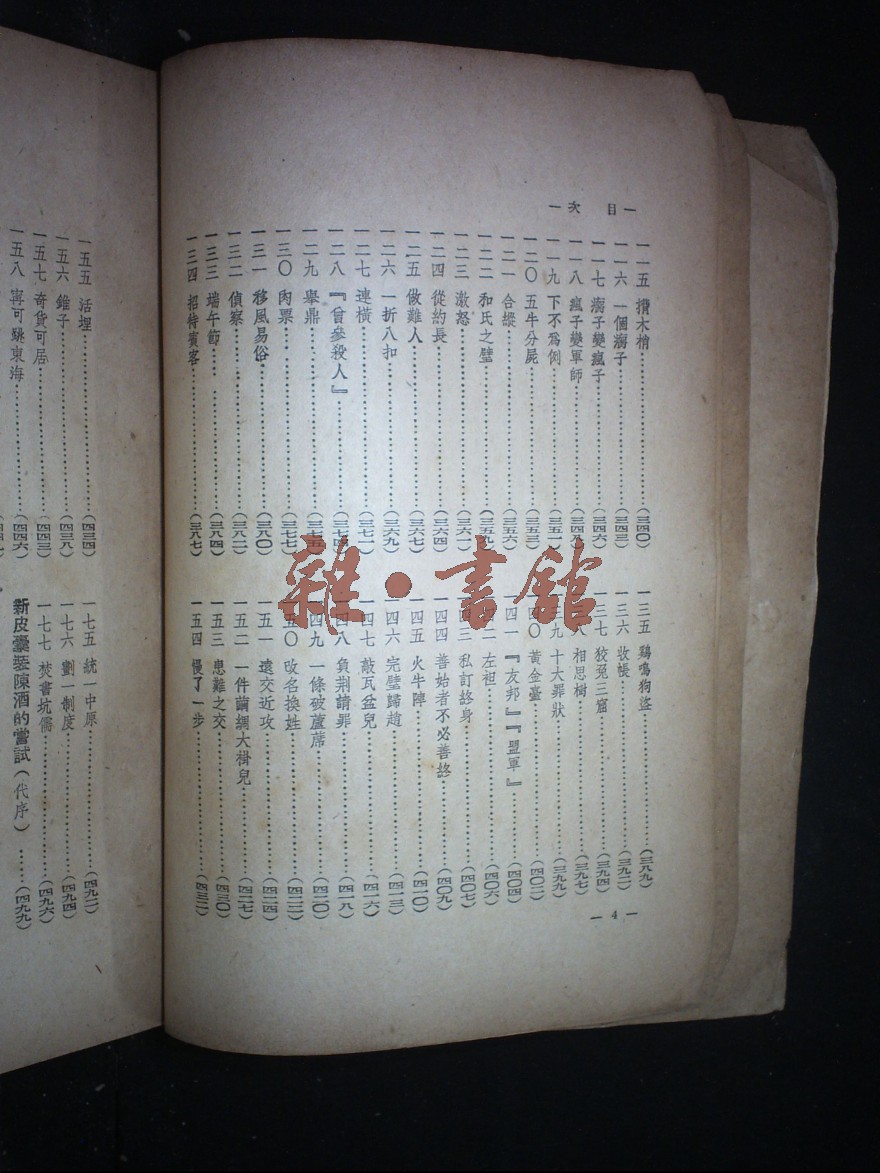 — 目 次 —
一一五 揹木梢……(三四〇)
一一六 一個瘸子……(三四三)
一一七 瘸子變瘋子……(三四六)
一一八 瘋子變軍師……(三四八)
一一九 下不為例……(三五一)
一二〇 五牛分屍……(三五三)
一二一 合縱……(三五六)
一二二 和氏之璧……(三五九)
一二三 激怒……(三六二)
一二四 從約長……(三六五)
一二五 做難人……(三六七)
一二六 一折八扣……(三六九)
一二七 連橫……(三七二)
一二八 『曾參殺人』……(三七四)
一二九 舉鼎……(三七五)
一三〇 肉票……(三七七)
一三一 移風易俗……(三八〇)
一三二 偵察……(三八二)
一三三 端午節……(三八四)
一三四 招待賓客……(三八七)
一三五 鷄鳴狗盜……(三八九)
一三六 收帳……(三九二)
一三七 狡兔三窟……(三九四)
三八 相思樹……(三九七)
三九 十大罪狀……(三九九)
四〇 黃金臺……(四〇二)
四一 『友邦』『盟軍』……(四〇四)
二 左袒……(四〇六)
四三 私訂終身……(四〇七)
一四四 善始者不必善終……(四〇九)
一四五 火牛陣……(四一〇)
一四六 完璧歸趙……(四一三)
一四七 敲瓦盆兒……(四一六)
一四八 負荆請罪……(四一八)
一四九 一條破蘆蓆……(四二〇)
一五〇 改名換姓……(四二二)
一五一 遠交近攻……(四二四)
一五二 一件繭綢大褂兒……(四二七)
一五三 患難之交……(四三〇)
一五四 慢了一步……(四三二)
— 4 —
一五五 活埋……(四三四)
一五六 錐子……(四三八)
一五七 奇貨可居……(四四三)
一五八 寧可跳東海……(四四六)
一七五 統一中原……(四九二)
一七六 劃一制度……(四九四)
一七七 焚書坑儒……(四九六)
新皮囊裝陳酒的嘗試(代序)……(四九九)
雜·書館